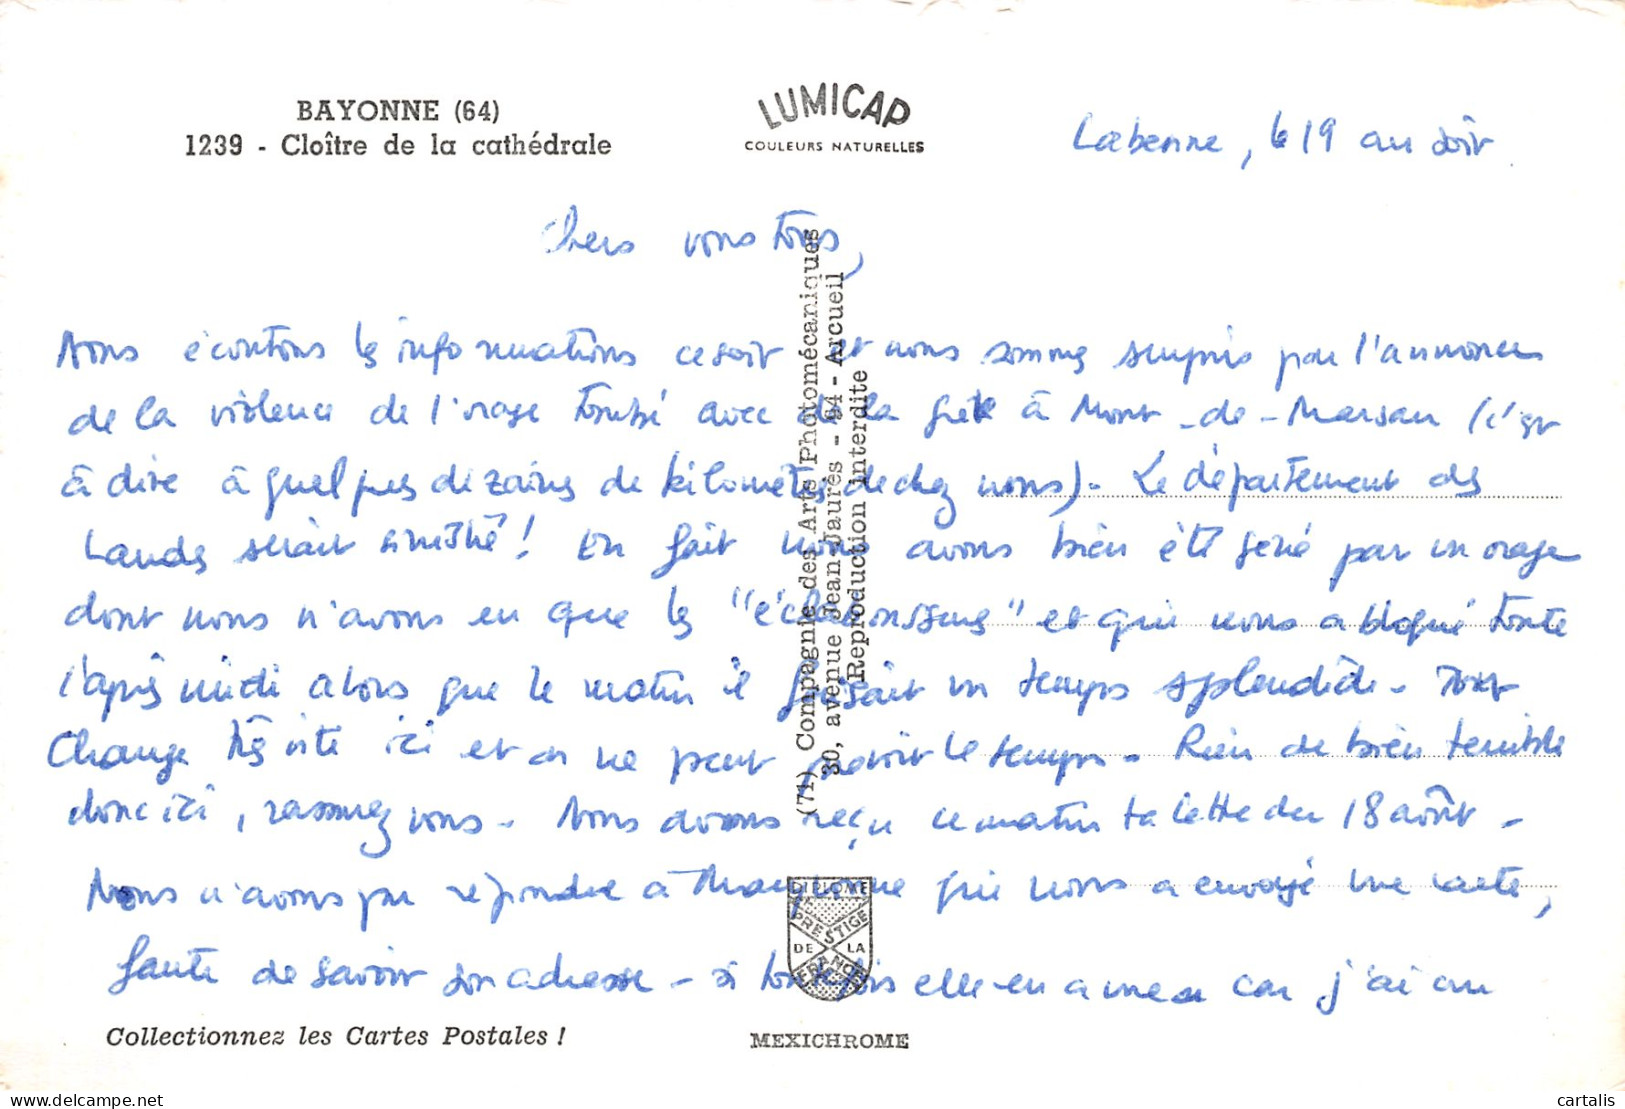 BAYONNE (64)
1239 - Cloître de la cathédrale
LUMICAP
COULEURS NATURELLES
Labenne, le 19 au soir
Chers vous tous,
Nous écoutons les informations ce soir et nous sommes surpris par l'annonce
de la violence de l'orage tombé avec de la grêle à Mont-de-Marsan (c'est
à dire à quelques dizaines de kilomètres de chez nous). Le département des
Landes serait sinistré! En fait nous avons bien été gêné par un orage
dont nous n'avons eu que les "éclaboussures" et qui nous a bloqué toute
l'après midi alors que le matin il faisait un temps splendide. Tout
change très vite ici et on ne peut prévoir le temps. Rien de bien terrible
donc ici, rassurez vous. Nous avons reçu ce matin ta lettre du 18 août.
Nous n'avons pu répondre à qui nous a envoyé une carte,
faute de savoir son adresse - si toutefois elle en a une car j'ai cru
(71) Compagnie des Arts Photomécaniques
30, avenue Jean-Jaurès - 94 - Arcueil
Reproduction interdite
DIPLOME
PRESTIGE
DE LA
FRANCE
Collectionnez les Cartes Postales !
MEXICHROME
delcampe.net
cartalis